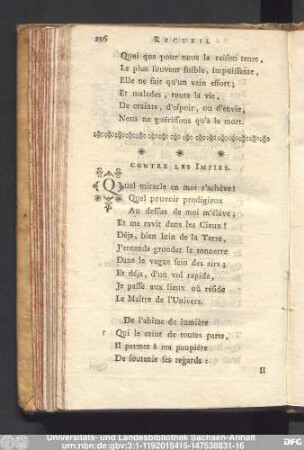 256 RECUEIL
Quoi que pour nous la raison tente,
Le plus souvent foible, impuissante,
Elle ne fait qu'un vain effort;
Et malades, toute la vie,
De crainte, d'espoir, ou d'envie,
Nous ne guérissons qu'à la mort.
CONTRE LES IMPIES.
Quel miracle en moi s'achève!
Quel pouvoir prodigieux
Au dessus de moi m'élève;
Et me ravit dans les Cieux!
Déja, bien loin de la Terre,
J'entends gronder le tonnerre
Dans le vague sein des airs;
Et déja, d'un vol rapide,
Je passe aux lieux où réside
Le Maître de l'Univers.
De l'abîme de lumière
Qui le ceint de toutes parts,
Il permet à ma paupière
De soutenir ses regards:
Il
Universitäts- und Landesbibliothek Sachsen-Anhalt
urn:nbn:de:gbv:3:1-1192015415-147538831-16
DFG